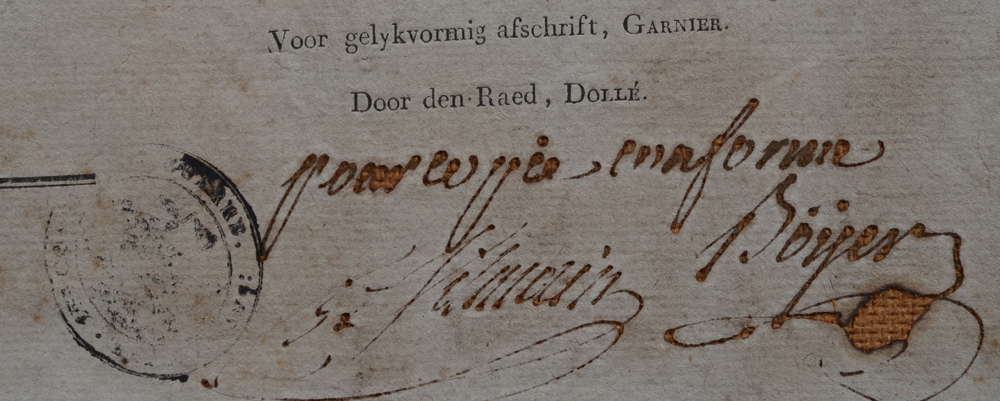 Voor gelykvormig afschrift, GARNIER.
Door den Raed, DOLLÉ.
pour copie conforme
Böÿer